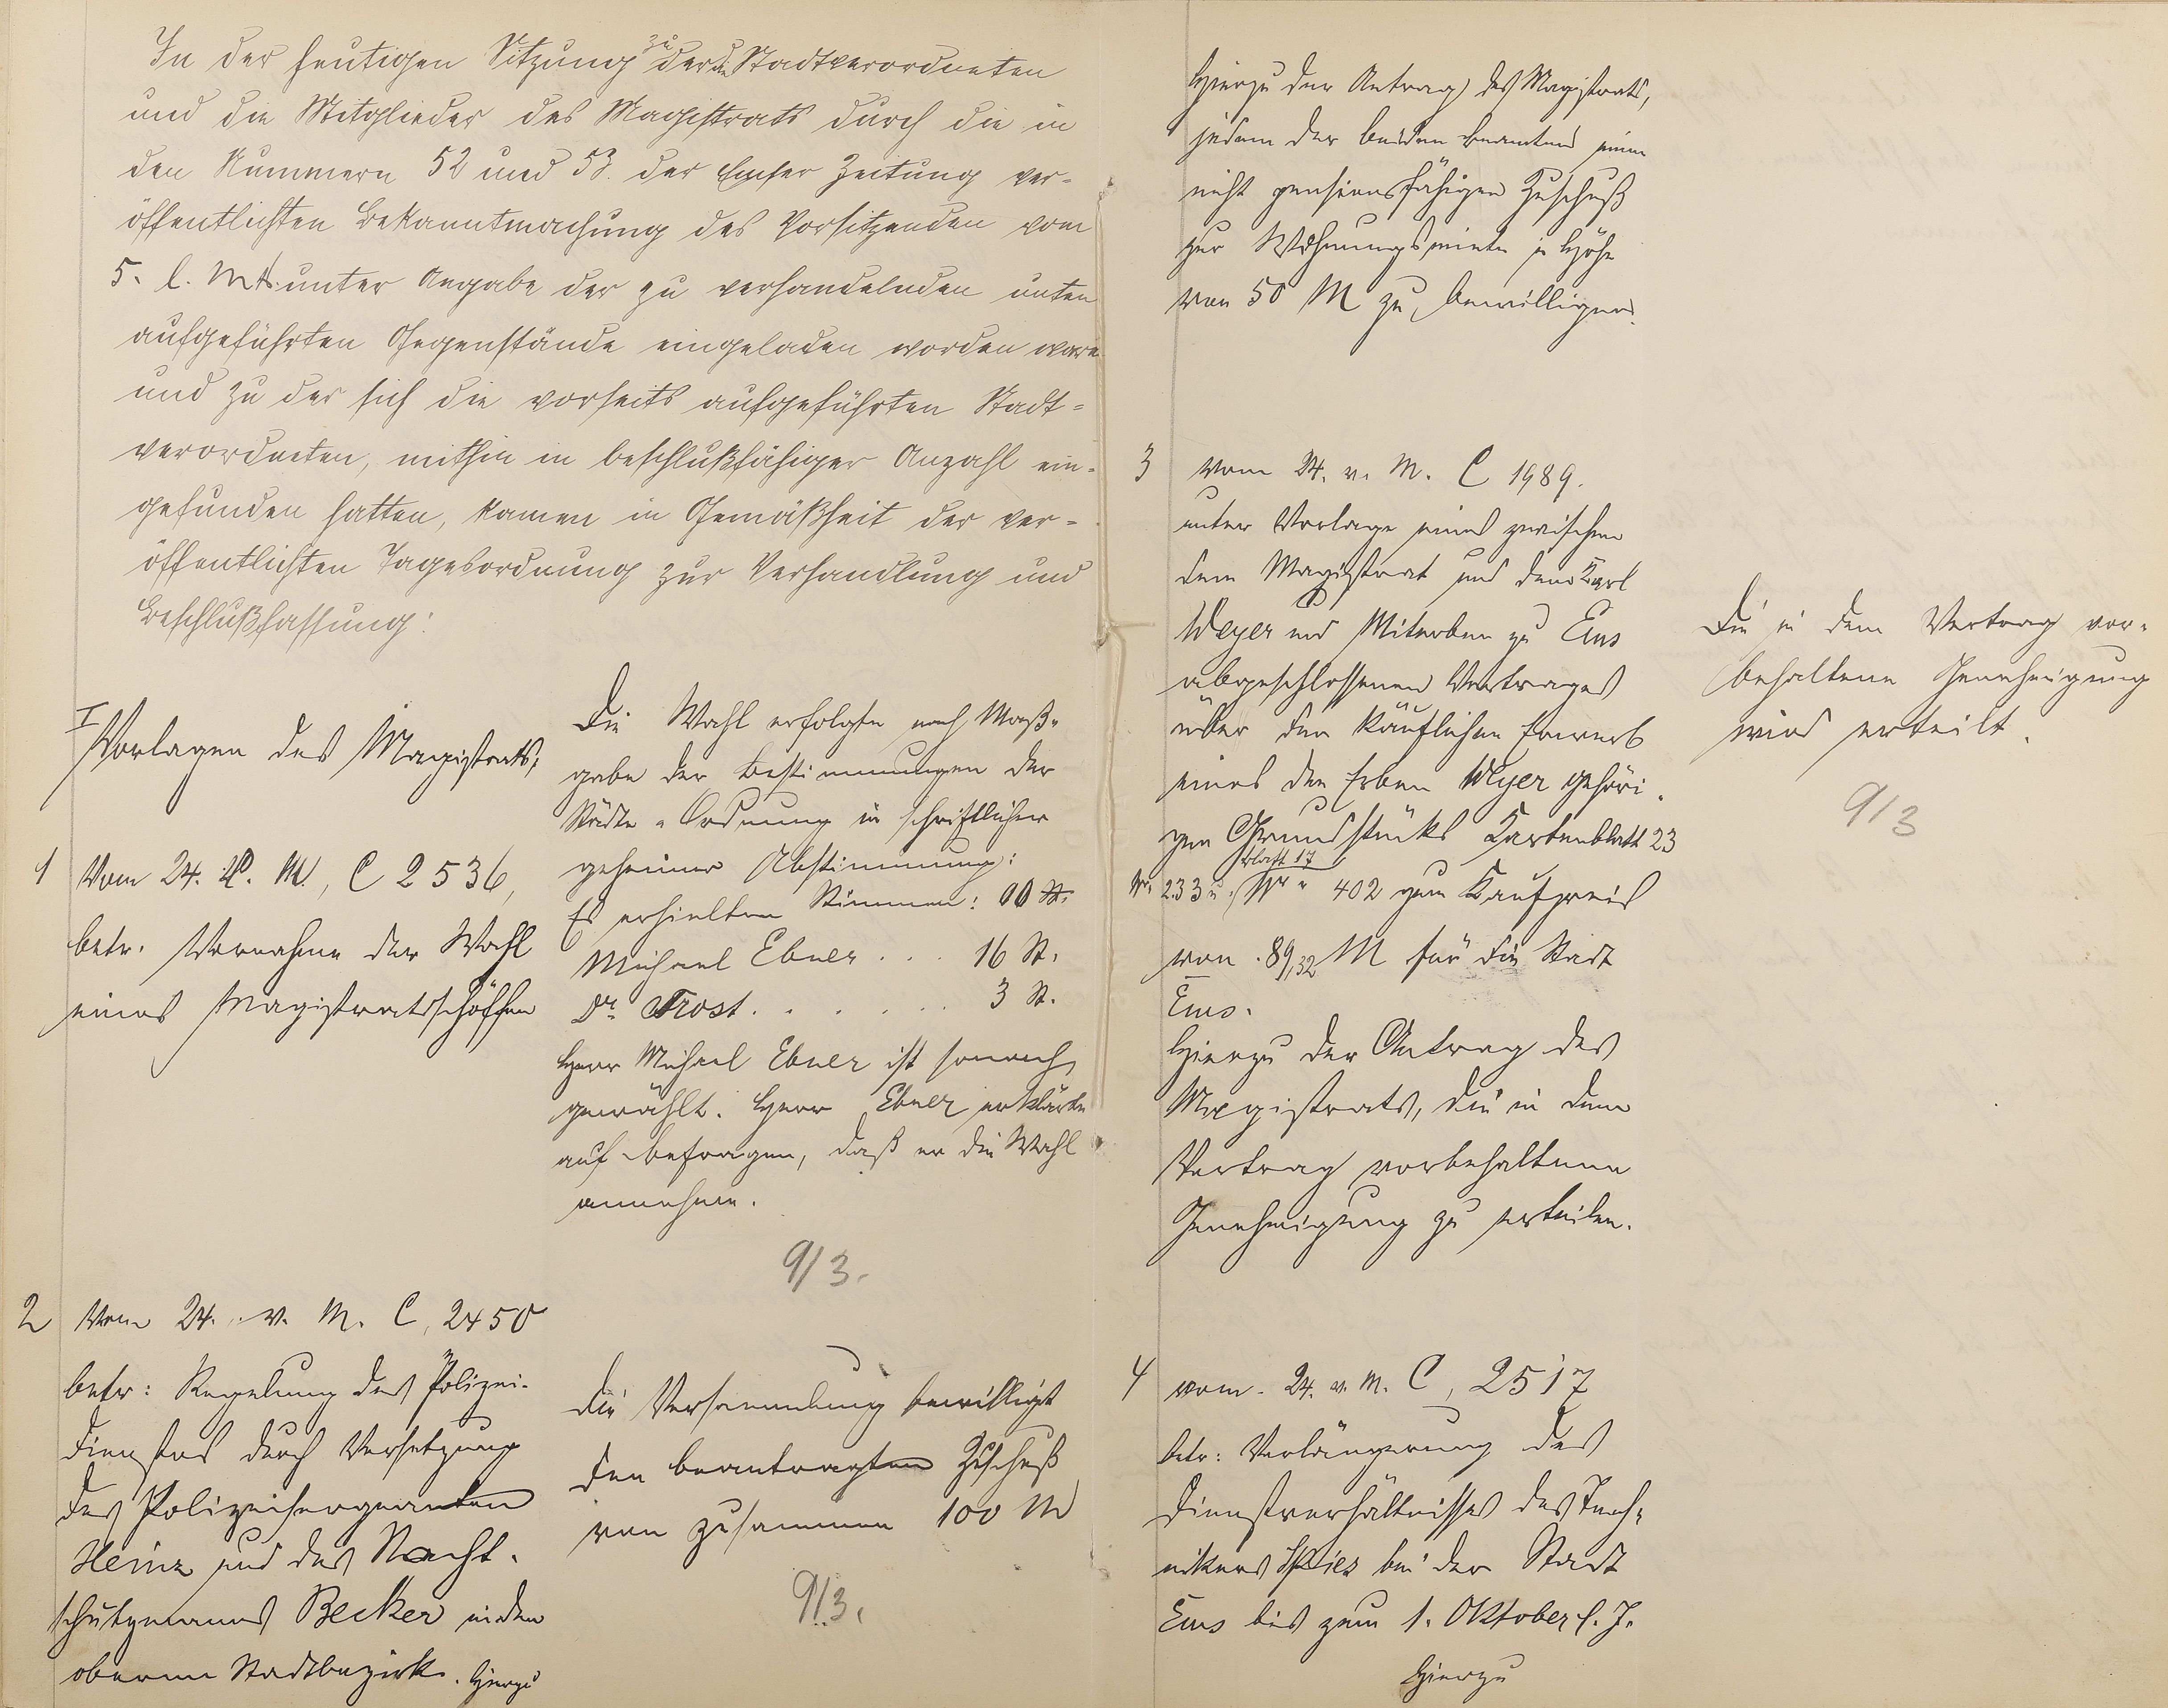 In der heutigen Sitzung zu der die Stadtverordneten
und die Mitglieder des Magistrats durch die in
den Nummern 52 und 53. der Emser Zeitung ver-
öffentlichten Bekanntmachung des Vorsitzenden vom
5. l. Mts. unter Angabe der zu verhandelnden unten
aufgeführten Gegenstände eingeladen worden waren
und zu der sich die vorseits aufgeführten Stadt-
verordneten, mithin in beschlußfähiger Anzahl ein-
gefunden hatten, kamen in Gemäßheit der ver-
öffentlichten Tagesordnung zur Verhandlung und
Beschlußfassung:
I
Vorlagen des Magistrats,
1 Vom 24. v. M., C 2536,
betr. Vornahme der Wahl
eines Magistratsschöffen
Die Wahl erfolgte nach Maß-
gabe der Bestimmungen der
Städte-Ordnung in schriftlicher
geheimer Abstimmung:
Es erhielten Stimmen: St.
Michael Ebner . . . 16 St.
Dr. Trost . . . . . . 3 St.
Herr Michael Ebner ist sonach
gewählt. Herr Ebner erklärte
auf Befragen, daß er die Wahl
annehme.
9/3.
2 Vom 24. v. M. C. 2450
betr: Regelung des Polizei-
dienstes durch Versetzung
des Polizeisergeanten
Heinz und des Nacht-
schutzmanns Becker in den
oberen Stadtbezirk. Hierzu
Die Versammlung bewilligt
den beantragten Zuschuß
von zusammen 100 M
9/3.
Hierzu der Antrag des Magistrats,
jedem der beiden Beamten einen
nicht pensionsfähigen Zuschuß
zur Wohnungsmiete in Höhe
von 50 M zu bewilligen.
3 Vom 24. v. M. C 1989.
unter Vorlage eines zwischen
dem Magistrat und dem Karl
Weyer und Miterben zu Ems
abgeschlossenen Vertrages
über den käuflichen Erwerb
eines den Erben Weyer gehöri-
gen Grundstücks Kartenblatt 23
Nr. 233 u. Blatt 17 Nr. 402 zum Kaufpreis
von 89,32 M für die Stadt
Ems.
Hierzu der Antrag des
Magistrats, die in dem
Vertrag vorbehaltene
Genehmigung zu erteilen.
Die in dem Vertrag vor-
behaltene Genehmigung
wird erteilt.
9/3
4 vom 24. v. M. C, 2517
betr: Verlängerung des
Dienstverhältnisses des Tech-
nikers Spies bei der Stadt
Ems bis zum 1. Oktober l. J.
Hierzu